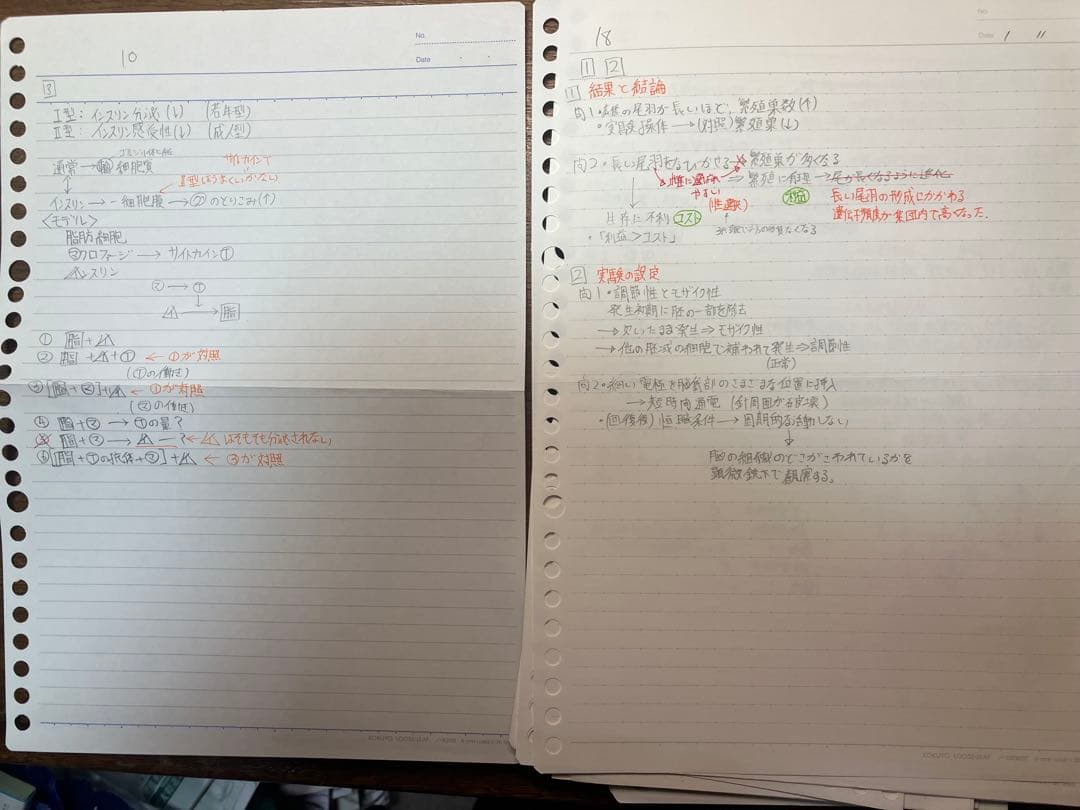 No.
Date
10
3
Ⅰ型：インスリン分泌(↓) (若年型)
Ⅱ型：インスリン感受性(↓) (成人型)
通常→輸 細胞質
サイトカインで
Ⅱ型はうまくいかない
インスリン→細胞膜→ のとりこみ(↑)
<モデル>
脂肪細胞
マクロファージ → サイトカイン①
インスリン
マ → サ
イ → 脂
① 脂+イ
② 脂+イ+サ ← ①が対照
(サの働き)
③ [脂+マ]+イ ← ①が対照
(マの働き)
④ 脂+マ → サの量?
⑤ 脂+マ → イ ー ? ← イはそもそも分泌されない
⑥ [脂+サの抗体+マ]+イ ← ③が対照
No.
Date
18
1 2
1 結果と結論
問1・雄の尾羽が長いほど、繁殖巣数(↑)
・実験操作→(対照)繁殖巣(↓)
問2・長い尾羽をなびかせる→繁殖巣が多くなる
雌に選ばれやすい ⇒ 繁殖に有利→尾が長くなるように進化
(性選択)
利益
長い尾羽の形成にかかわる
遺伝子頻度が集団内で高くなった.
生存に不利 コスト
・「利益>コスト」
2 実験の設定
問1・調節性とモザイク性
発生初期に胚の一部を除去
→欠いたまま発生⇒モザイク性
→他の胚域の細胞で補われて発生⇒調節性
(正常)
問2・細い電極を脳底部のさまざまな位置に挿入
→短時間通電 (針周囲が破壊)
・(回復後) 恒暗条件→周期的な活動しない
↓
脳の組織のどこがこわれているかを
顕微鏡下で観察する。